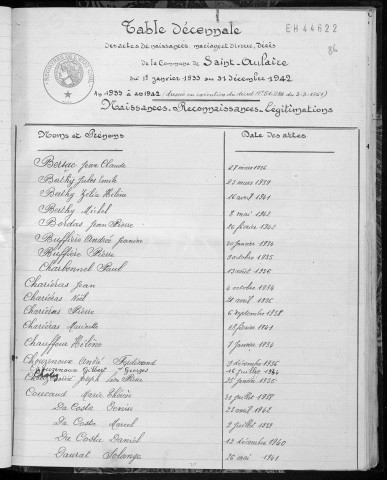 EH44622
86
Table décennale
des actes de naissances, mariages et divorce, décès
de la Commune de Saint-Aulaire
du 1er janvier 1933 au 31 décembre 1942
Naissances - Reconnaissances - Légitimations
Noms et Prénoms
Date des actes
Bersac Jean Claude
Berthy Jules Emile
23 mars 1939
Berthy Zélia Hélène
16 avril 1941
Berthy Michel
8 mai 1942
Bordas Jean Pierre
Buffière Andrée Jeanine
20 février 1934
Buffière Pierre
3 octobre 1935
Charbonnel Paul
13 août 1936
Chariéras Jean
4 octobre 1934
Chariéras Noël
21 avril 1936
Chariéras Pierre
6 septembre 1938
Chariéras Marinette
18 février 1941
Chauffour Hélène
7 janvier 1934
Chouzenoux André Ferdinand
9 décembre 1936
Chouzenoux Gilbert Georges
16 juillet 1940
Joseph Léon Pierre
25 janvier 1935
Coucaud Marie Thérèse
31 juillet 1938
Da Costa
22 avril 1942
Da Costa Marcel
9 juillet 1939
Da Costa Daniel
12 décembre 1940
Daurat Solange
26 mai 1941